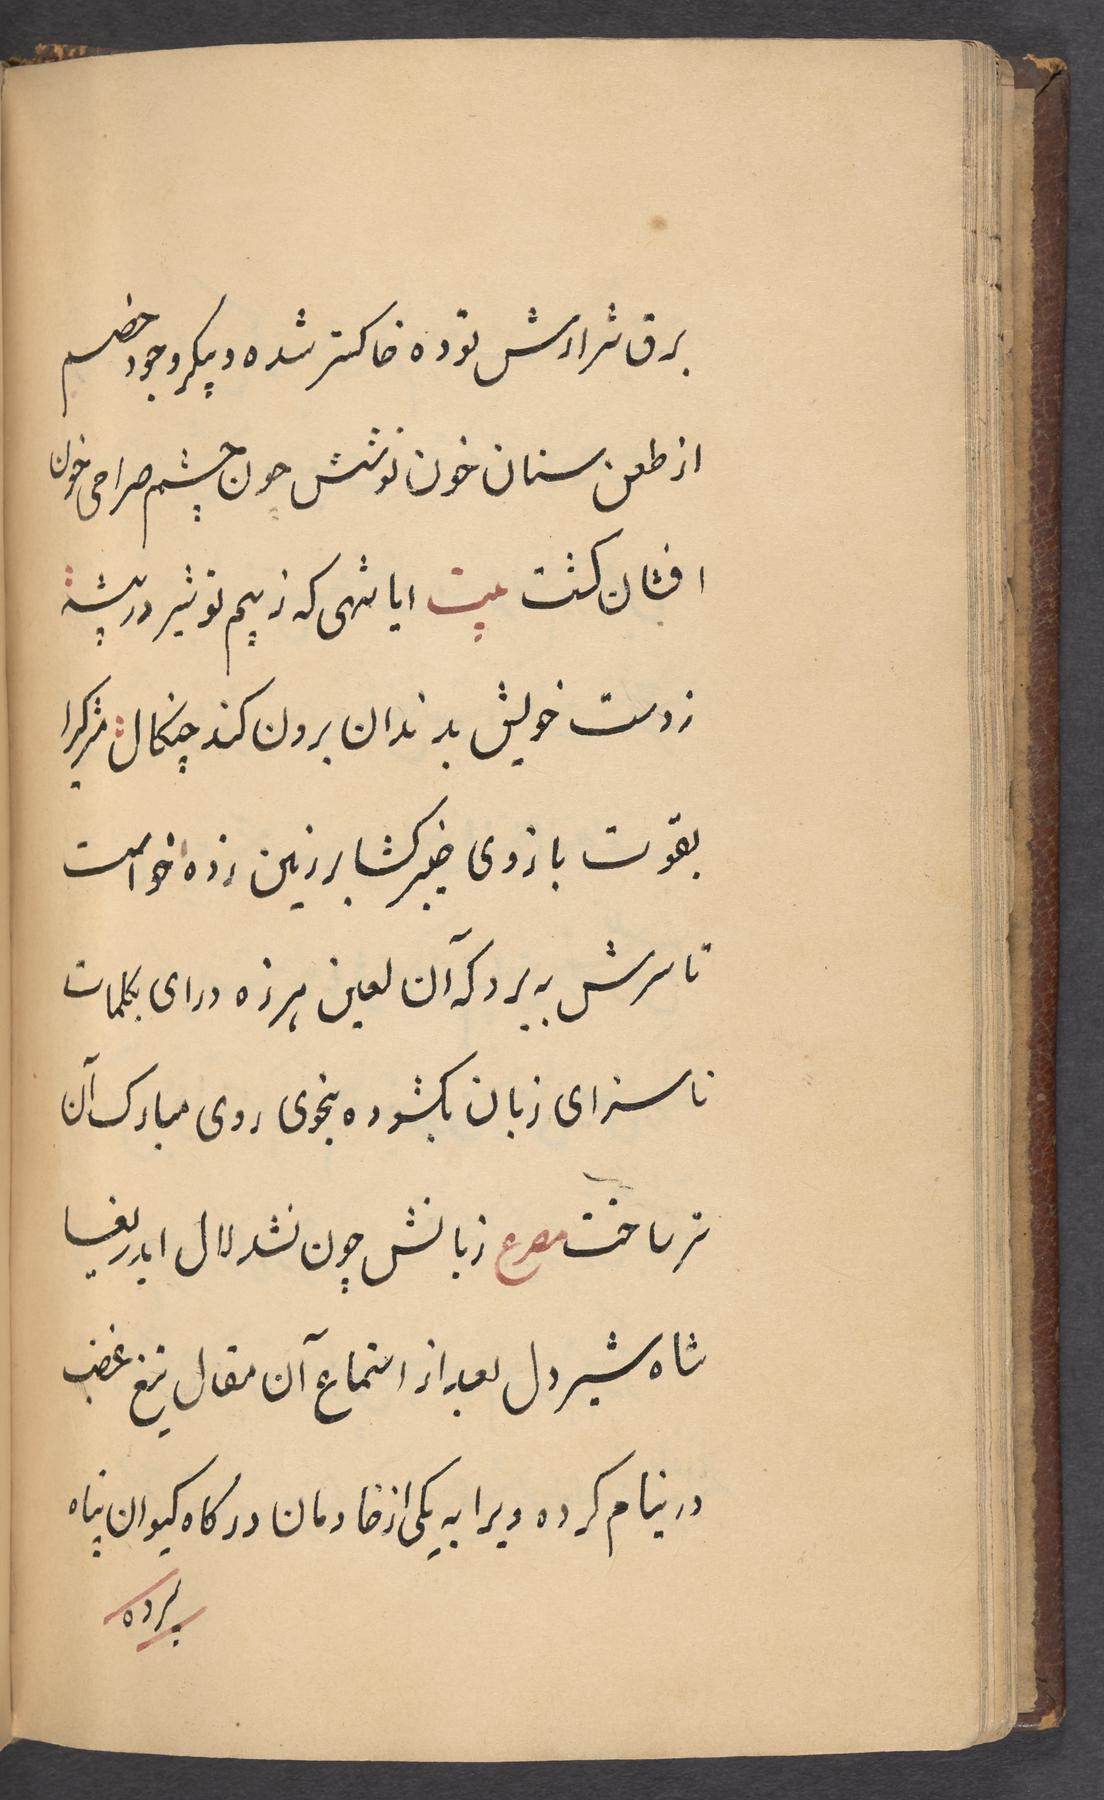 برق شرارش توده خاکستر شده و پیکر وجود خصم
از طعن سنان خون نوشش چون چشم صراحی خون
افشان کشت بیت ایا شهی که ز بیم تو شیر در بیشه
ز دست خویش بدندان برون کند چنکال شیر کیرا
بقوت بازوی خیبر کشا بر زمین زده خواست
تا سرش به برد که آن لعین هرزه درای بکلمات
ناسزای زبان بکشوده بخوی روی مبارک آن
تر ساخت مصرع زبانش چون نشد لال ایدریغا
شاه شیر دل بعد از استماع آن مقال تیغ غضب
در نیام کرده ویرا به یکی از خادمان درکاه کیوان پناه
برده